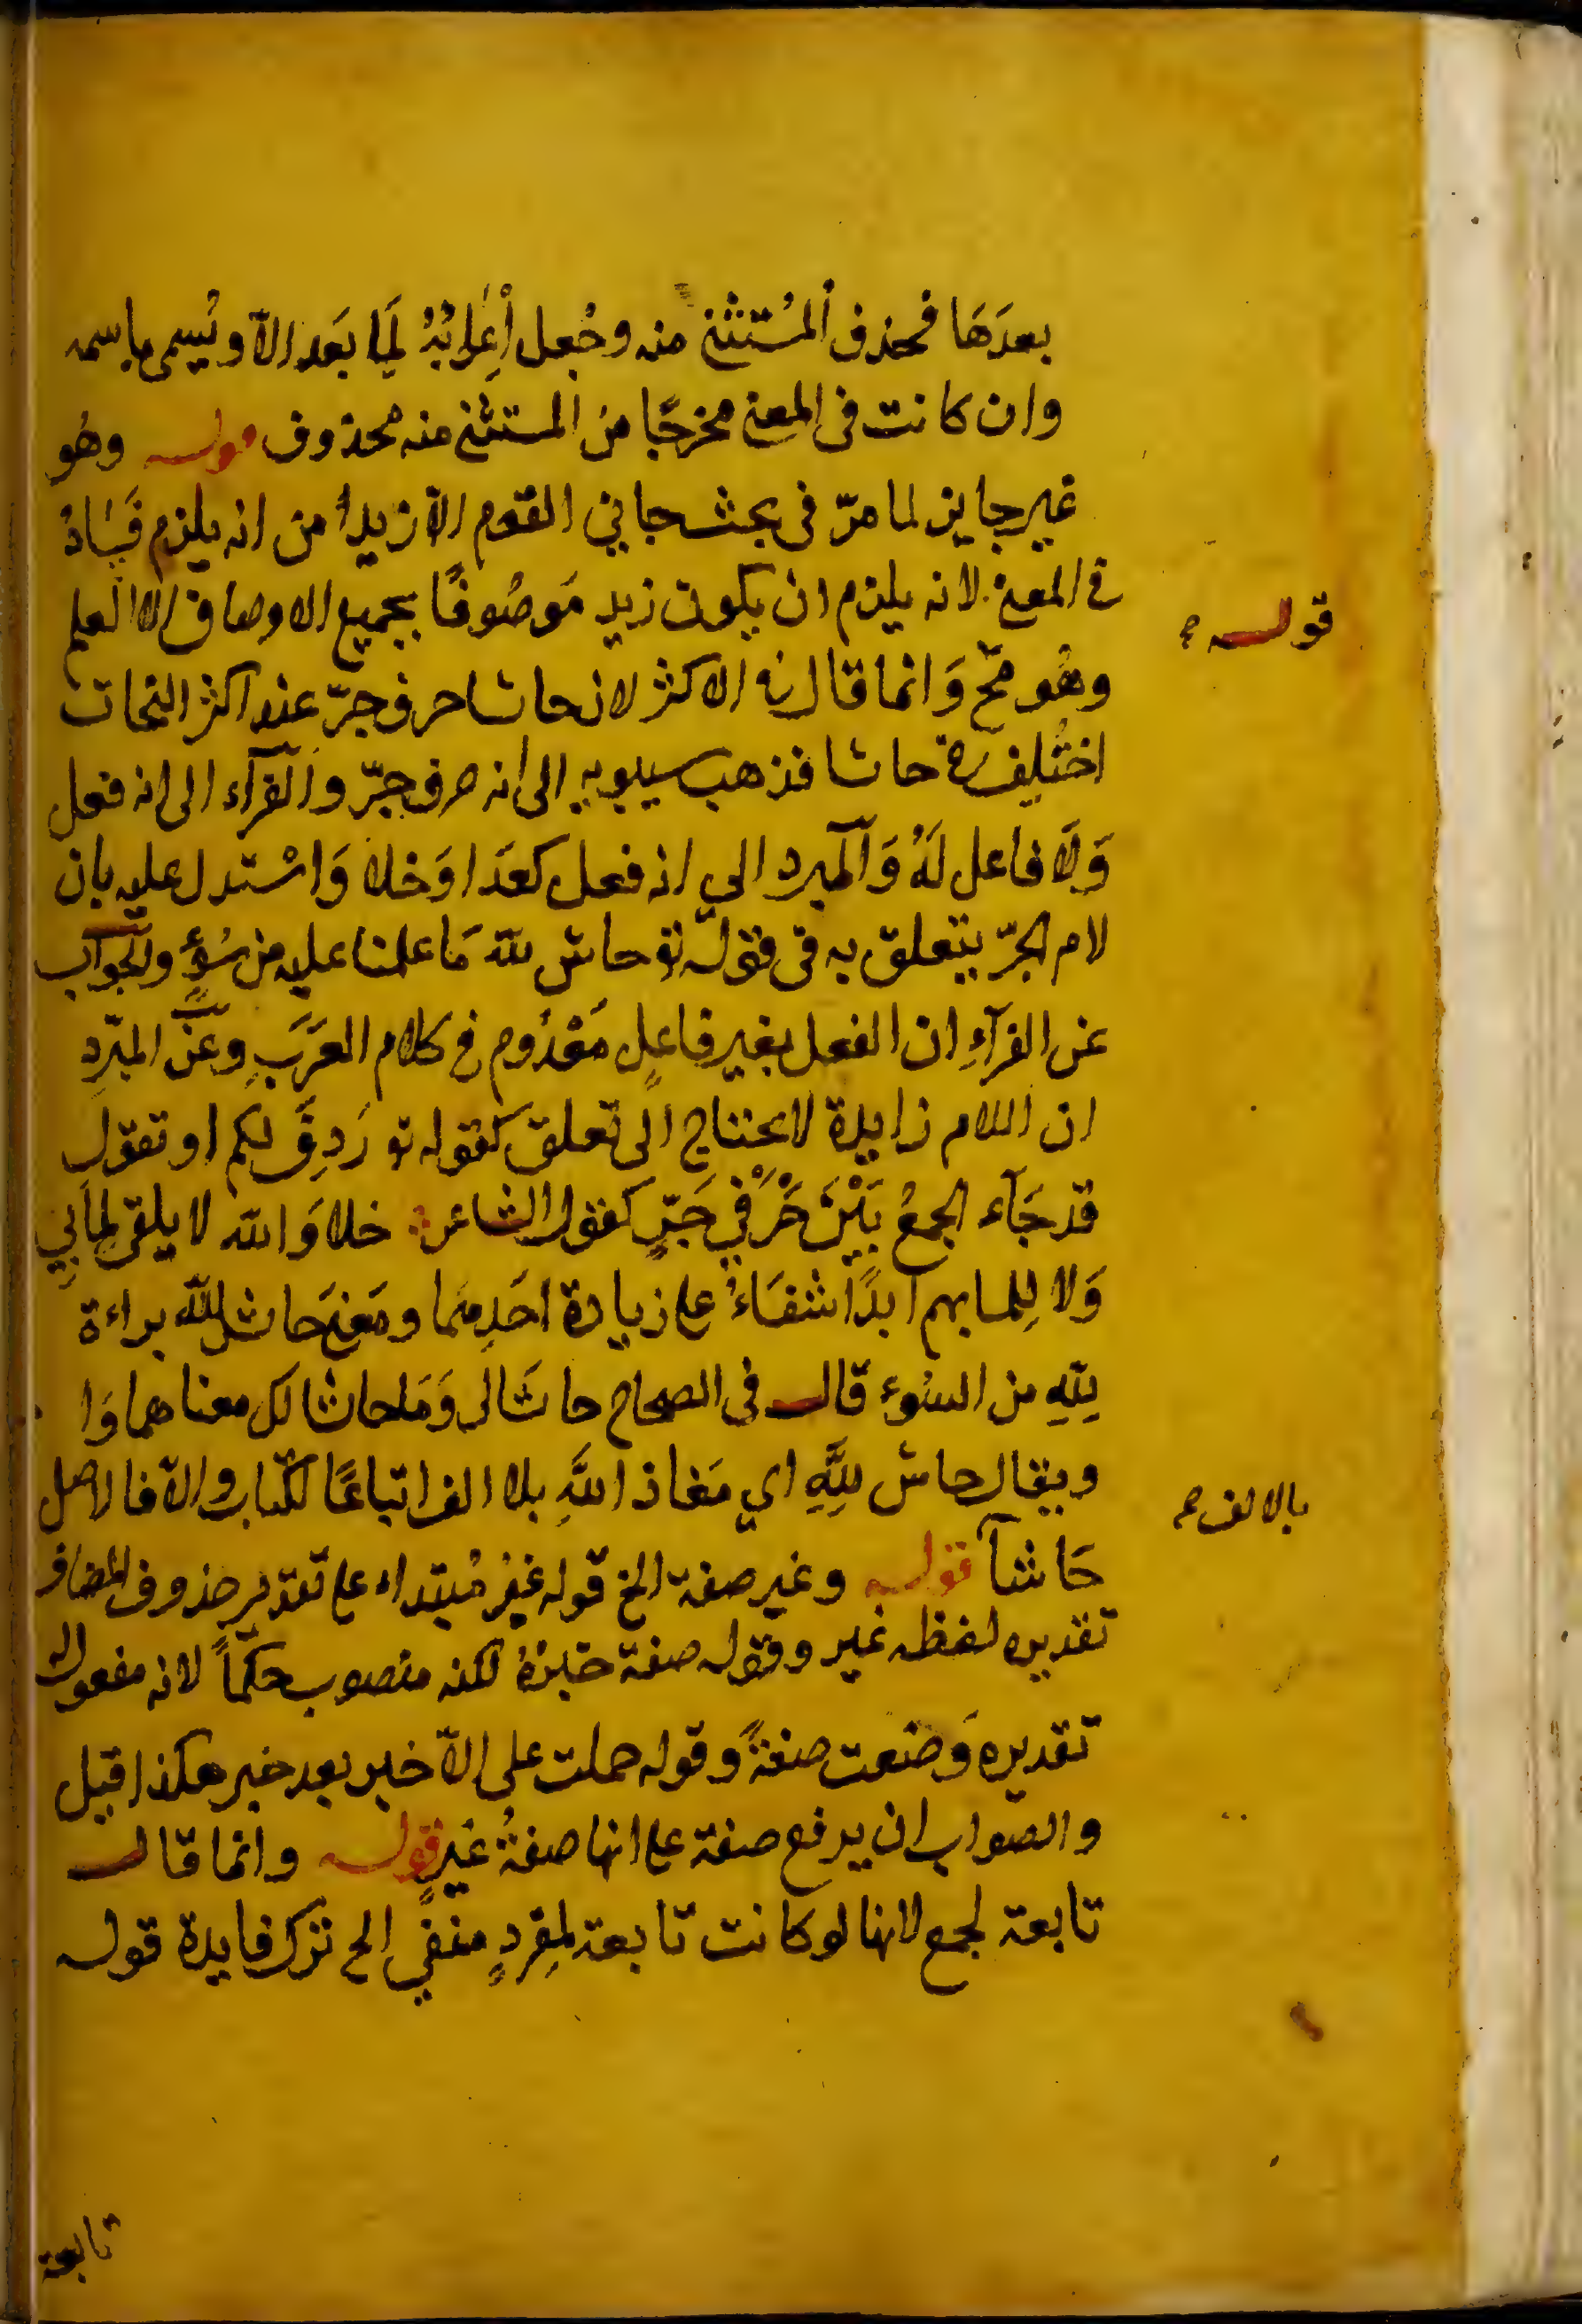 بعدَهَا فحذف المُستثنى منه وجُعل اِعرابُهُ لِمَا بَعد الاّ ويُسمى باسمه
وان كانت فى المعنى مخرجًا من المستثنى منه محذوف قوله وهُو
غير جايز لما مرّ فى بحث جاني القوم الاّ زيدا من انه يلزم فَسَادُ
فى المعنى لانه يلزم ان يكون زيد مَوصُوفًا بجميع الاوصاف الا العلم
قوله
وهُو مح وَانما قال فى الاكثر لان حاشا حرف جرّ عند اكثر النحات
اختُلِف فى حاشا فذهب سيبويه الى انه حرف جرّ والفرآء الى انه فعل
وَلَا فاعل لَهُ وَالمبرد الى انه فعل كعَدَا وَخلا وَاسْتدل عليه بان
لام الجرّ يتعلق به فى قوله تع حاش للّه مَا علمنا عليه من سُوءٍ والجواب
عن الفرآءِ ان الفعل بغير فاعلٍ مَعْدُوم فى كلام العَرَبِ وعن المبرّدِ
ان اللام زايدة لا يحتاج الى تعلق كقوله تع رَدِفَ لكم او تقول
قد جَآء الجمعُ بَيْنَ حَرْفي جَرٍّ كقول الشاعر خلا وَالله لا يلقى لِمَابِي
وَلا لِلِما بهم ابدًا شفَاءُ على زيادة احَدِهما ومَعنى حَاش للّه براءة
لِلّهِ من السُوء قال فى الصحاح حاشَا لك وَمَا حاشا لك معناهما وَا
ويقال حاش لِلَّهِ اي مَعَاذ اللّهِ بلا الف اتباعًا للكتاب والاّ فالاصل
بالالف
حَاشآ قوله وغير صفة الخ قوله غيرُ مُبتداء على تقدير حذوف المضاف
تقديره لفظه غير وقوله صفة خبرُهُ لكنه منصوب حكمًا لانه مفعول له
تقديره وَضعت صفةً وقوله حملت على الاّ خبر بعد خبر هكذا قيل
والصواب ان يرفع صفة على انها صفةُ غيرٍ قوله وانما قال
تابعة لجمع لانها لو كانت تابعة لمفردٍ منفيٍ الح ترك فايدة قوله
تابعة